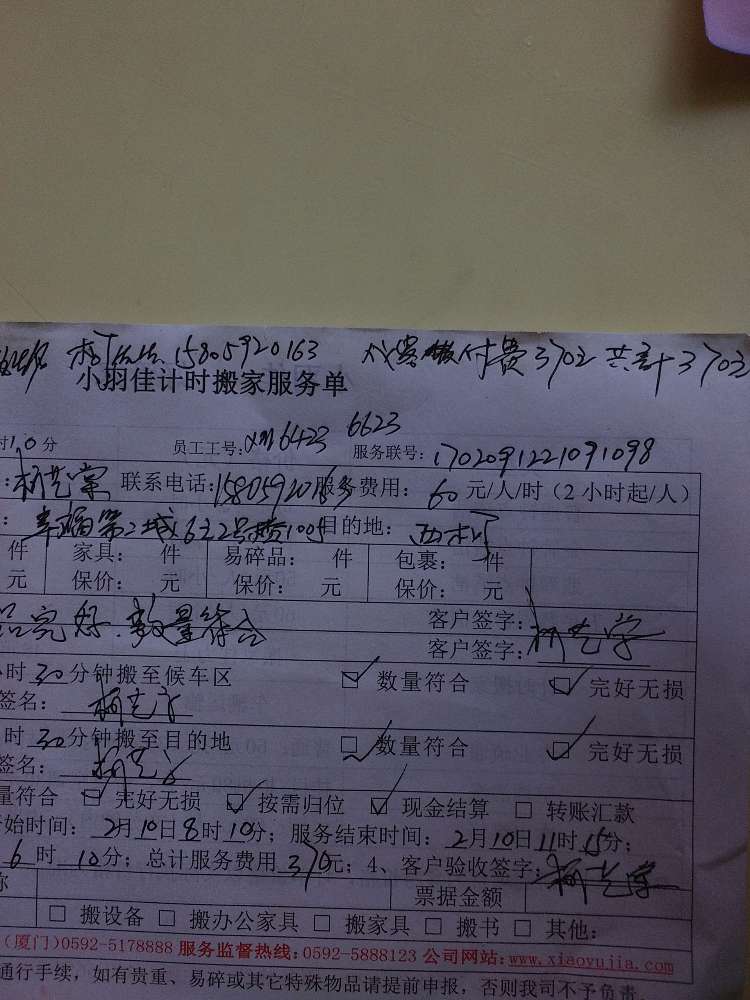 15805920163 付费370元 共计370元
小羽佳计时搬家服务单
时10分 员工工号: xm6423 6623 服务联号: 1702091221091098
联系电话: 15805920163 服务费用: 60元/人/时（2小时起/人）
幸福第2城 2号楼1005 目的地:
件 家具: 件 易碎品: 件 包裹: 件
元 保价: 元 保价: 元 保价: 元
品完好.数量符合 客户签字:
客户签字:
时30分钟搬至候车区 ☑数量符合 ☑完好无损
签名:
时30分钟搬至目的地 ☑数量符合 ☑完好无损
签名:
量符合 ☑完好无损 ☑按需归位 ☑现金结算 □转账汇款
开始时间: 2月10日8时10分; 服务结束时间: 2月10日11时15分;
6时10分; 总计服务费用370元; 4、客户验收签字:
称 票据金额
□搬设备 □搬办公家具 □搬家具 □搬书 □其他:
（厦门)0592-5178888 服务监督热线:0592-5888123 公司网站:www.xiaoyujia.com
通行手续，如有贵重、易碎或其它特殊物品请提前申报，否则我司不予负责